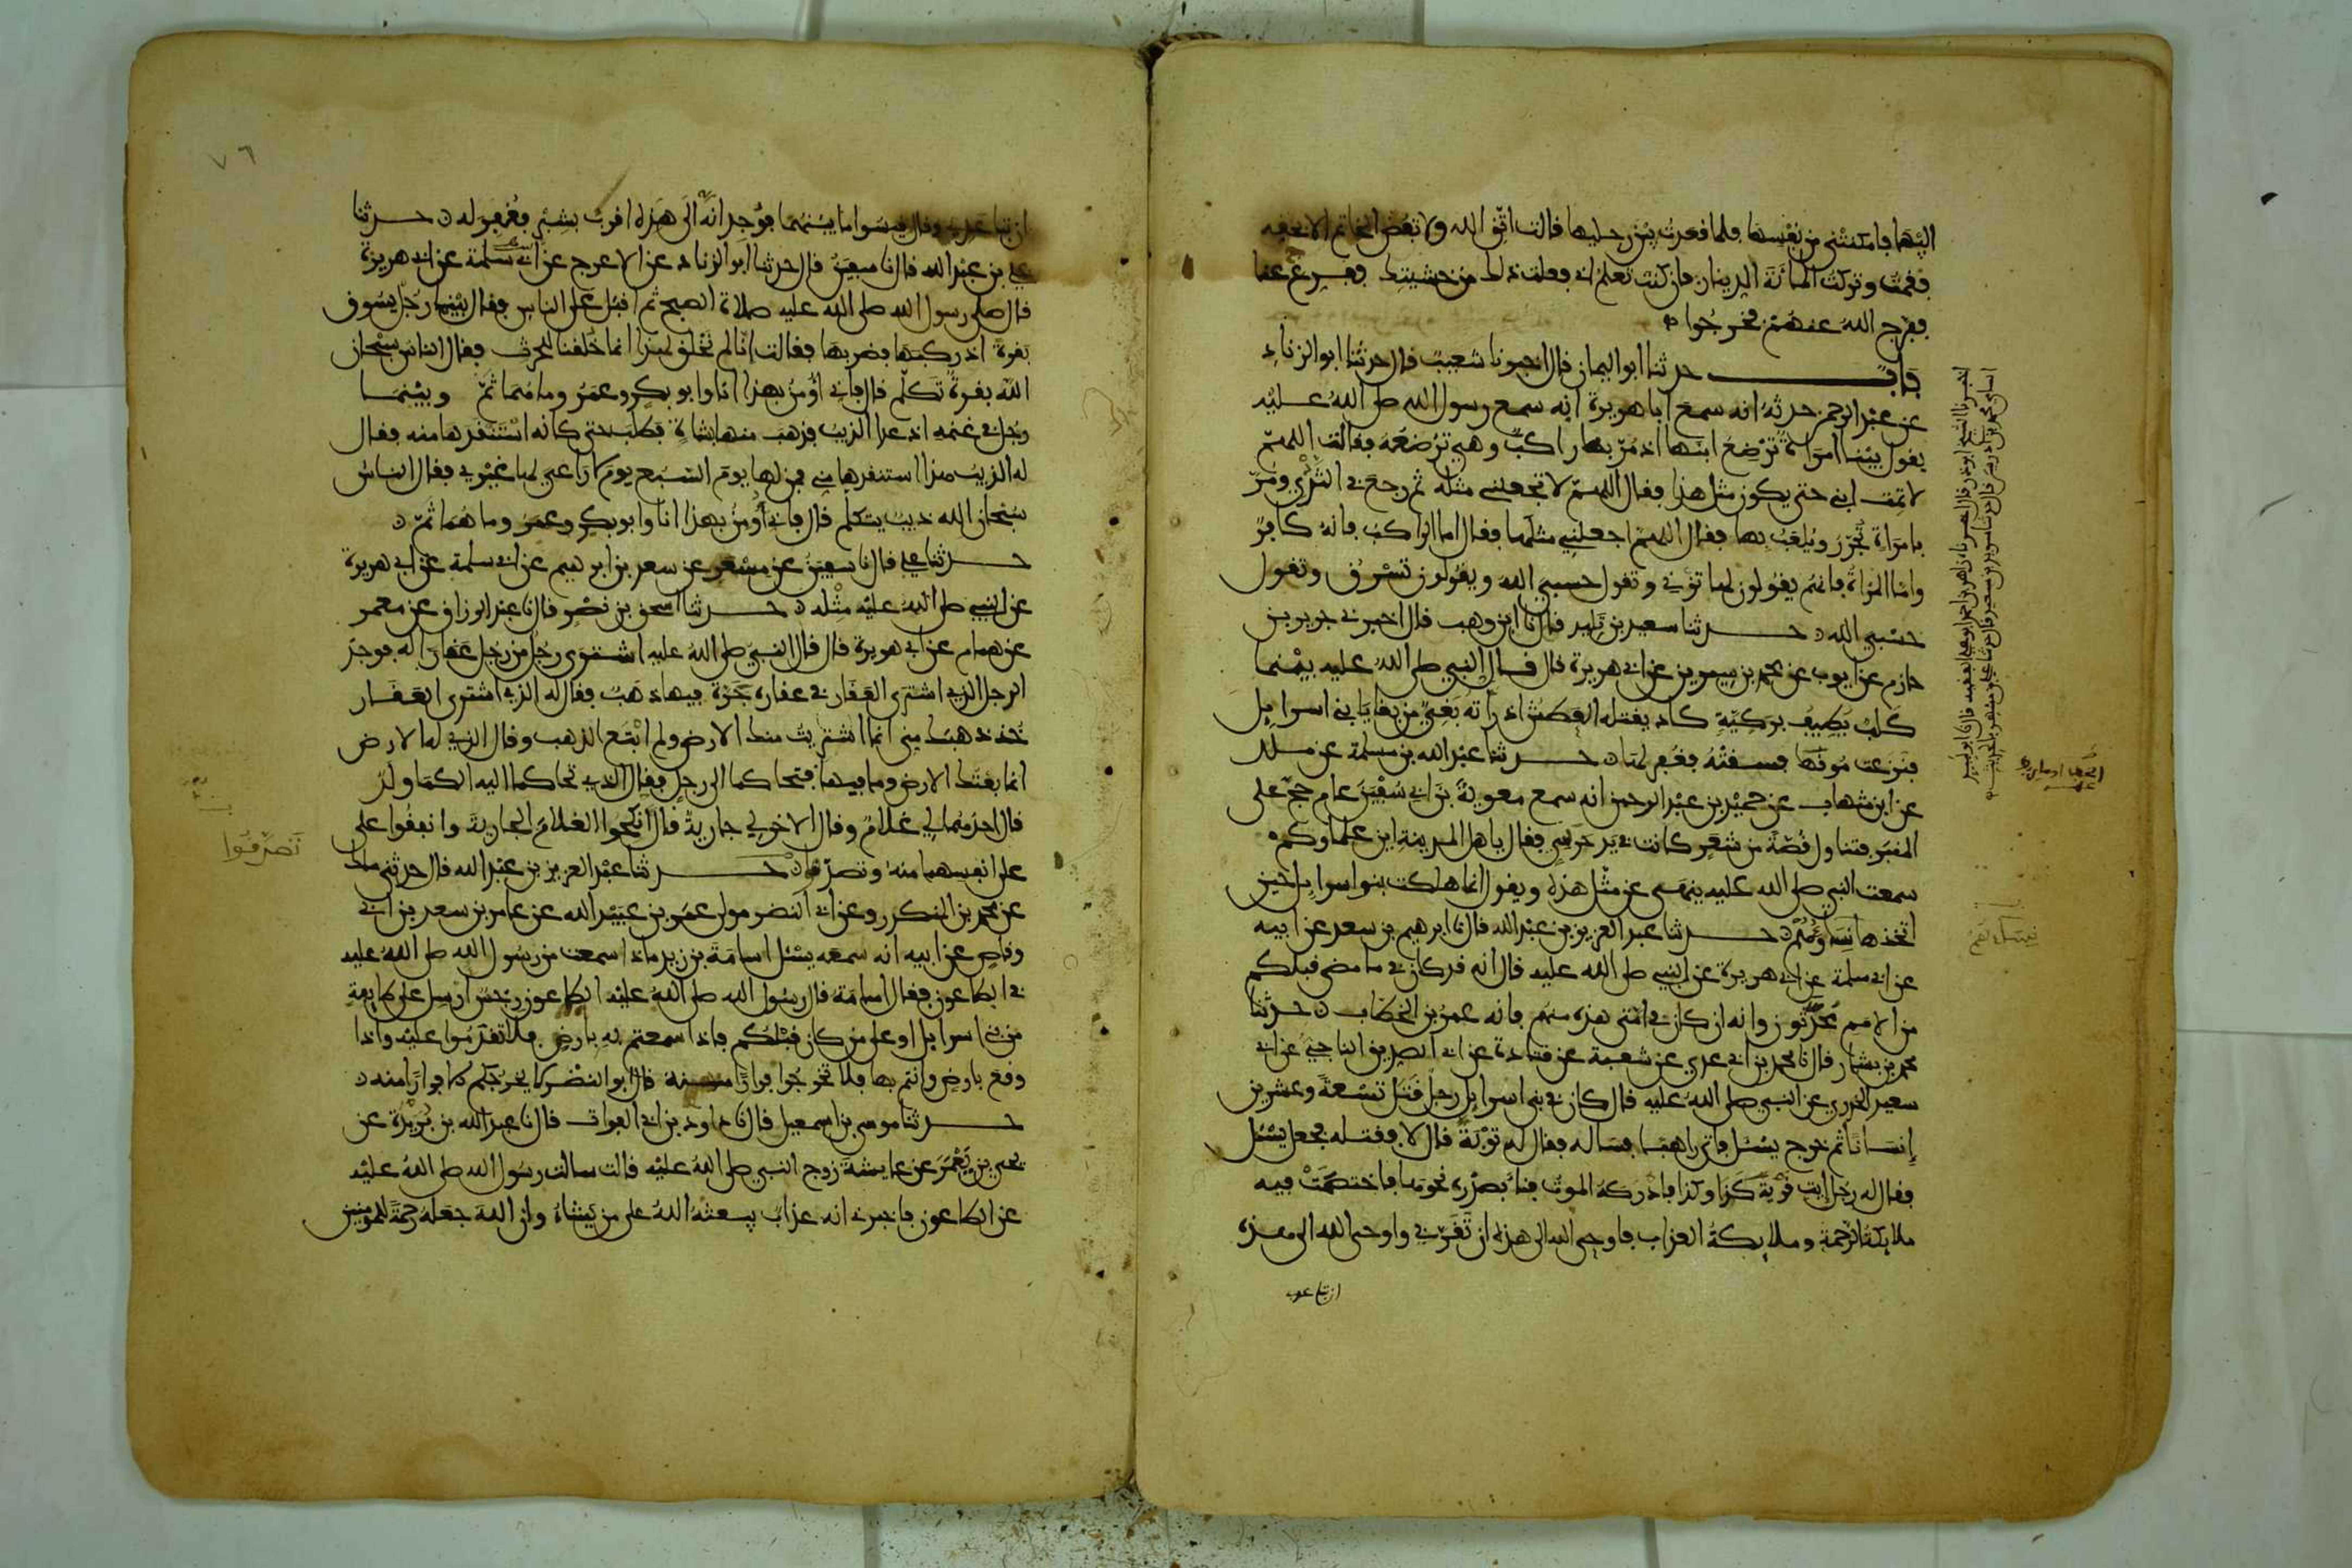 اليها فامكنتني من نفسها فلما قعدت بين رجليها قالت اتق الله ولا تفض الخاتم الا بحقه
فقمت وتركت المائة الدينار فان كنت تعلم اني فعلت ذلك من خشيتك ففرج عنا
ففرج الله عنهم فخرجوا
باب حدثنا ابو اليمان قال اخبرنا شعيب قال حدثنا ابو الزناد
عن عبد الرحمن حدثه انه سمع ابا هريرة انه سمع رسول الله صلى الله عليه
يقول بينما امراة ترضع ابنها اذ مر بها راكب وهي ترضعه فقالت اللهم
لا تمت ابني حتى يكون مثل هذا فقال اللهم لا تجعلني مثله ثم رجع في الثدي ومر
بامراة تجرر ويلعب بها فقال اللهم اجعلني مثلها فقال اما الراكب فانه كافر
واما المراة فانهم يقولون لها تزني وتقول حسبي الله ويقولون تسرق وتقول
حسبي الله حدثنا سعيد بن تليد قال نا ابن وهب قال اخبرني جرير بن
حازم عن ايوب عن محمد بن سيرين عن ابي هريرة قال قال النبي صلى الله عليه بينما
كلب يطيف بركية كاد يقتله العطش اذ راته بغي من بغايا بني اسرايل
فنزعت موقها فسقته فغفر لها حدثنا عبد الله بن مسلمة عن ملك
عن ابن شهاب عن حميد بن عبد الرحمن انه سمع معوية بن ابي سفين عام حج على
المنبر فتناول قصة من شعر كانت في يد حرسي فقال يا اهل المدينة اين علماوكم
سمعت النبي صلى الله عليه ينهى عن مثل هذه ويقول انما هلكت بنوا اسرايل حين
اتخذها نساوهم حدثنا عبد العزيز بن عبد الله قال نا ابرهيم بن سعد عن ابيه
عن ابي سلمة عن ابي هريرة عن النبي صلى الله عليه قال انه قد كان في ما مضى قبلكم
من الامم محدثون وانه ان كان في امتي هذه منهم فانه عمر بن الخطاب حدثنا
محمد بن بشار قال نا محمد بن ابي عدي عن شعبة عن قتادة عن ابي الصديق الناجي عن ابي
سعيد الخدري عن النبي صلى الله عليه قال كان في بني اسرايل رجل قتل تسعة وعشرين
إنسانا ثم خرج يسئل فاتى راهبا فساله فقال له توبة قال لا فقتله فجعل يسئل
فقال له رجل ايت قرية كذا وكذا فادركه الموت فناء بصدره نحوها فاختصمت فيه
ملايكة الرحمة وملايكة العذاب فاوحى الله الى هذه ان تقربي واوحى الله الى هذه
ان تباعدي
٧٦
ان تباعدي وقال قيسوا ما بينهما فوجد انه الى هذه اقرب بشبر فغفر له حدثنا
علي بن عبد الله قال نا سفين قال حدثنا ابو الزناد عن الاعرج عن ابي سلمة عن ابي هريرة
قال صلى رسول الله صلى الله عليه صلاة الصبح ثم اقبل على الناس فقال بينما رجل يسوق
بقرة اذ ركبها فضربها فقالت انا لم نخلق لهذا انما خلقنا للحرث فقال الناس سبحان
الله بقرة تكلم قال فاني اومن بهذا انا وابو بكر وعمر وما هما ثم وبينما
رجل في غنمه اذ عدا الذيب فذهب منها بشاة فطلب حتى كانه استنقذها منه فقال
له الذيب هذا استنقذها مني فمن لها يوم السبع يوم لا راعي لها غيري فقال الناس
سبحان الله ذيب يتكلم قال فاني اومن بهذا انا وابو بكر وعمر وما هما ثم
حدثنا علي قال نا سفين عن مسعر عن سعد بن ابرهيم عن ابي سلمة عن ابي هريرة
عن النبي صلى الله عليه مثله حدثنا اسحق بن نصر قال نا عبد الرزاق عن معمر
عن همام عن ابي هريرة قال قال النبي صلى الله عليه اشترى رجل من رجل عقارا له فوجد
الرجل الذي اشترى العقار في عقاره جرة فيها ذهب فقال له الذي اشترى العقار
خذ ذهبك مني انما اشتريت منك الارض ولم ابتع الذهب وقال الذي له الارض
انما بعتك الارض وما فيها فتحاكما الى رجل فقال الذي تحاكما اليه الكما ولد
قال احدهما لي غلام وقال الاخر لي جارية قال انكحوا الغلام الجارية وانفقوا على
على انفسهما منه وتصدقا حدثنا عبد العزيز بن عبد الله قال حدثني ملك
عن محمد بن المنكدر وعن ابي النضر مولى عمر بن عبيد الله عن عامر بن سعد بن ابي
وقاص عن ابيه انه سمعه يسئل اسامة بن زيد ماذا سمعت من رسول الله صلى الله عليه
في الطاعون فقال اسامة قال رسول الله صلى الله عليه الطاعون رجس ارسل على طايفة
من بني اسرايل او على من كان قبلكم فاذا سمعتم به بارض فلا تقدموا عليه واذا
وقع بارض وانتم بها فلا تخرجوا فرارا منه قال ابو النضر لا يخرجكم الا فرارا منه
حدثنا موسى بن اسمعيل قال نا داود بن ابي الفرات قال نا عبد الله بن بريدة عن
يحيى بن يعمر عن عايشة زوج النبي صلى الله عليه قالت سالت رسول الله صلى الله عليه
عن الطاعون فاخبرني انه عذاب يبعثه الله على من يشاء وان الله جعله رحمة للمومنين
تصدقوا